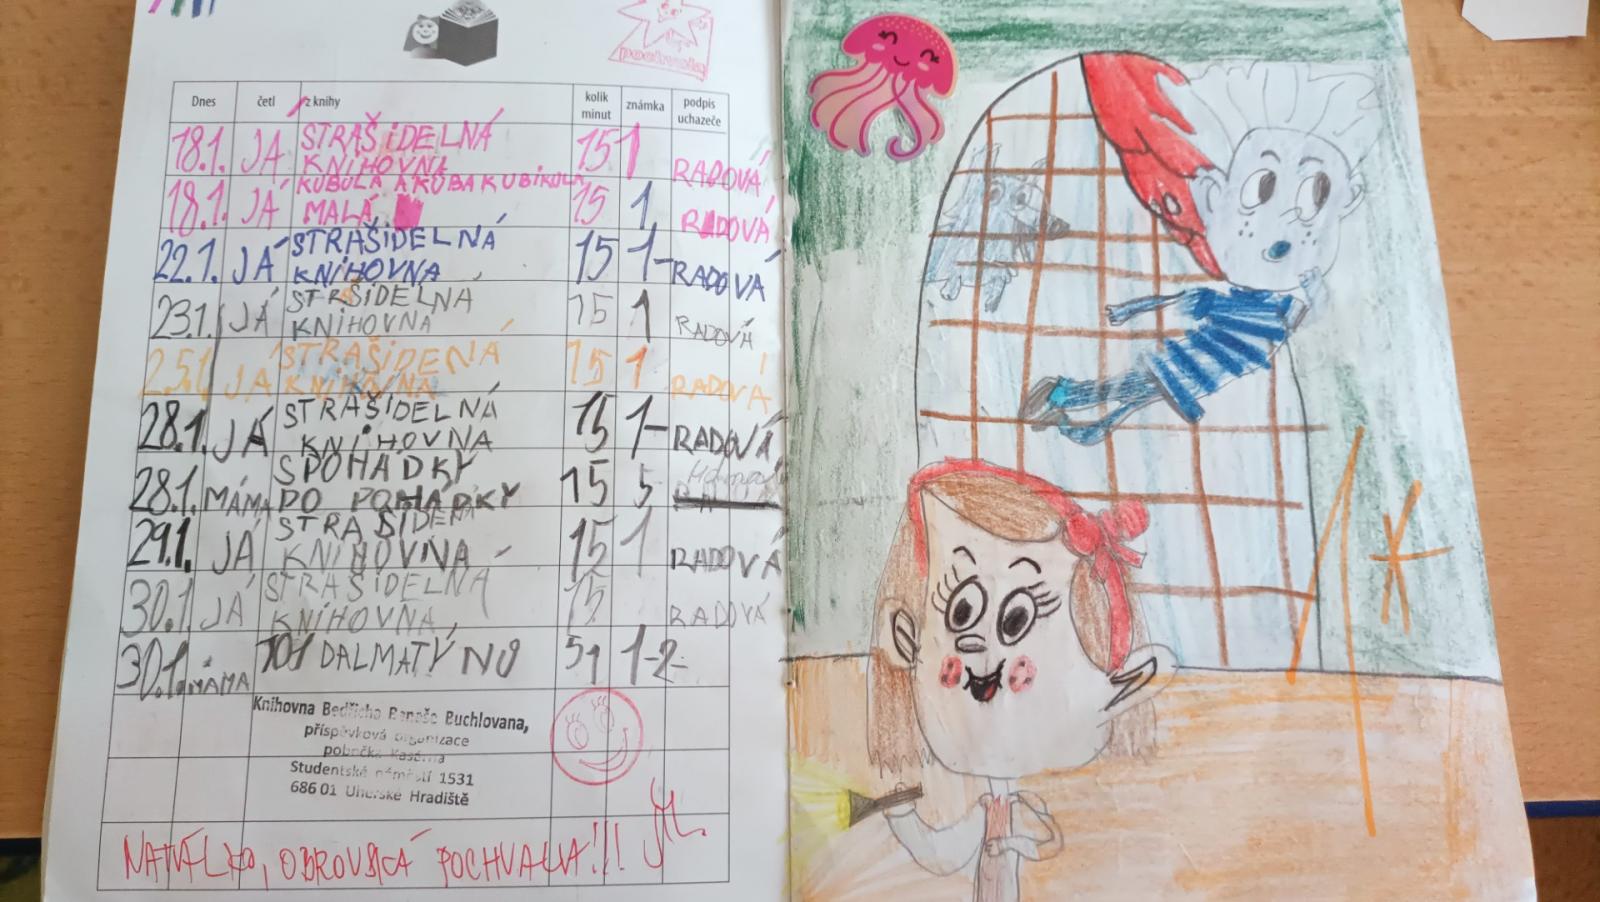 pochvala
Dnes četl z knihy kolik minut známka podpis uchazeče
18.1. JÁ STRAŠIDELNÁ KNIHOVNA 15 1 RADOVÁ
18.1. JÁ KUBULA A KUBA KUBIKULA MALÁ 15 1 RADOVÁ
22.1. JÁ STRAŠIDELNÁ KNIHOVNA 15 1- RADOVÁ
23.1. JÁ STRAŠIDELNÁ KNIHOVNA 15 1 RADOVÁ
25.1 JÁ STRAŠIDENÁ KNIHOVNA 15 1 RADOVÁ
28.1. JÁ STRAŠIDELNÁ KNIHOVNA 15 1- RADOVÁ
28.1. MÁMA SPOHÁDKY DO POHÁDKY 15 5
29.1. JÁ STRAŠIDENÁ KNIHOVNA 15 1 RADOVÁ
30.1 JÁ STRAŠIDELNÁ KNIHOVNA 15 RADOVÁ
30.1. MÁMA 101 DALMATÝNŮ 51 1-2-
Knihovna Bedřicha Beneše Buchlovana,
příspěvková organizace
pobočka Kasárna
Studentské náměstí 1531
686 01 Uherské Hradiště
NATÁLKO, OBROVSKÁ POCHVALA!!!
1*